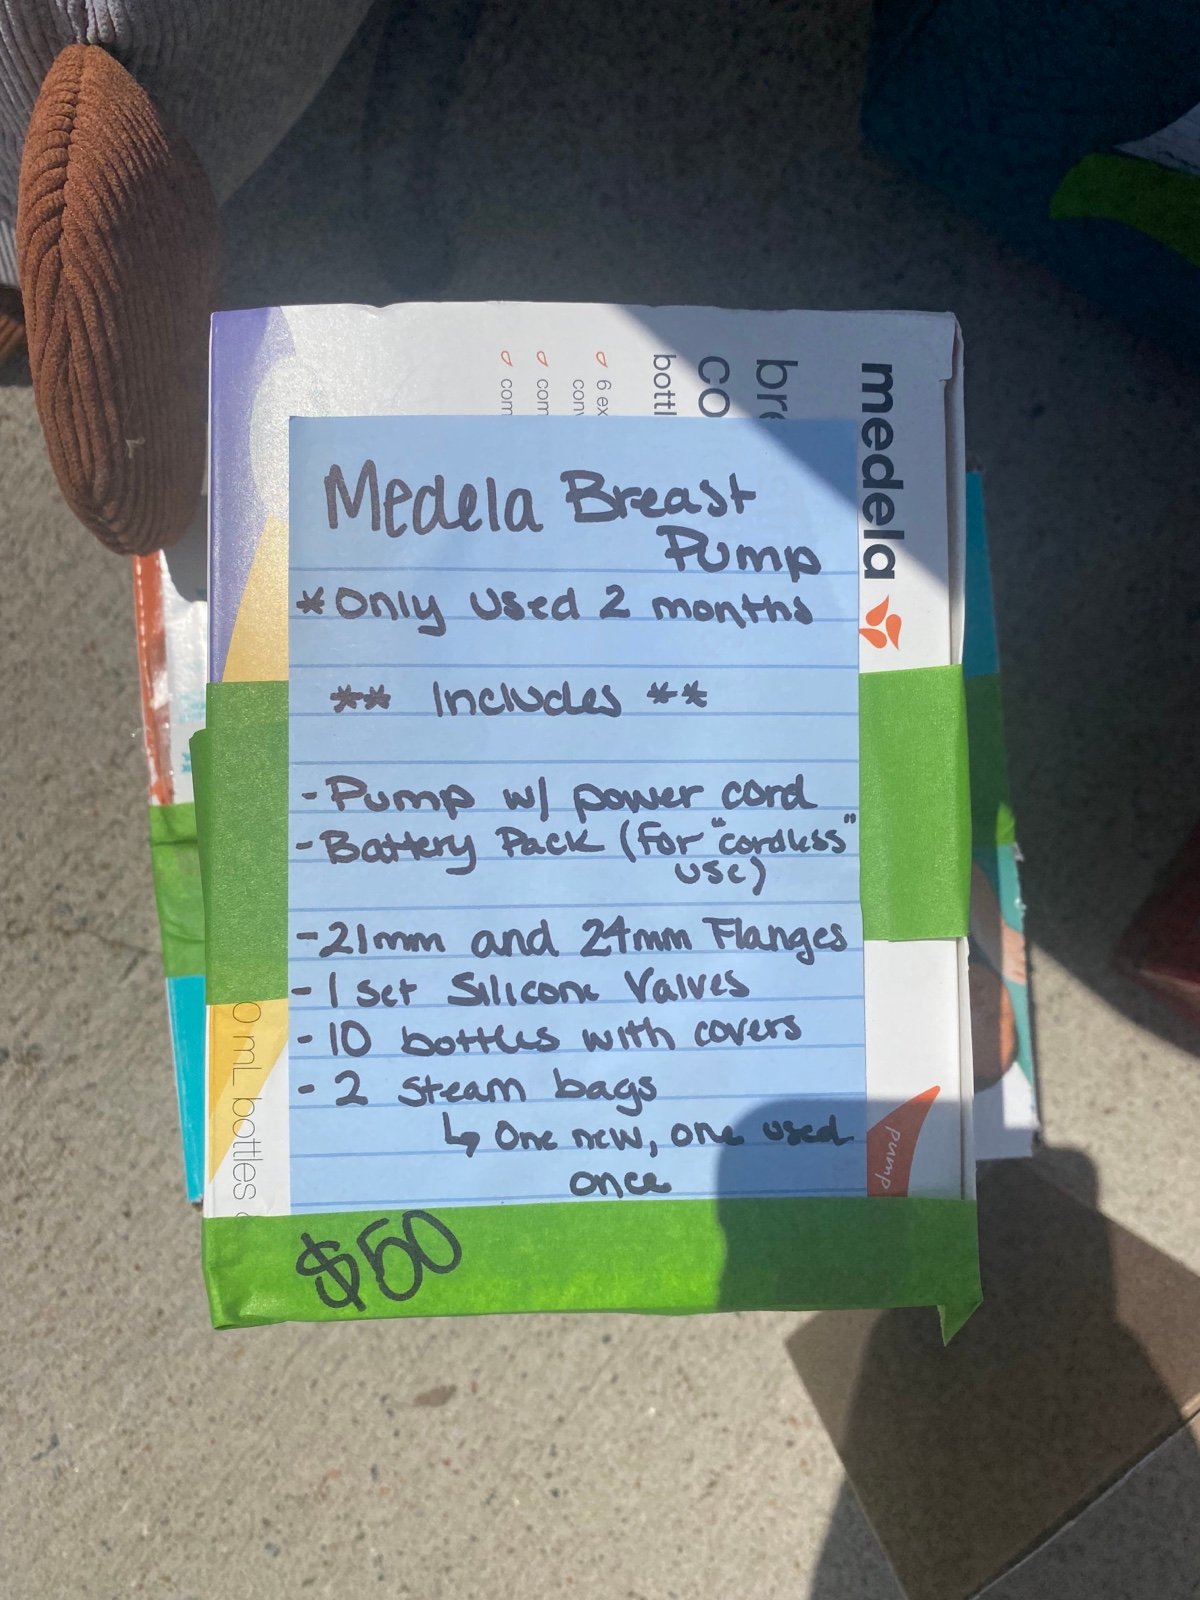 medela
bre
co
bottl
6 ex
conv
com
com
Medela Breast
Pump
*Only used 2 months
** Includes **
- Pump w/ power cord
- Battery Pack (for "cordless"
use)
- 21mm and 24mm Flanges
- 1 set Silicone Valves
- 10 bottles with covers
- 2 steam bags
↳ One new, one used
once
$50
0 mL bottles
pump